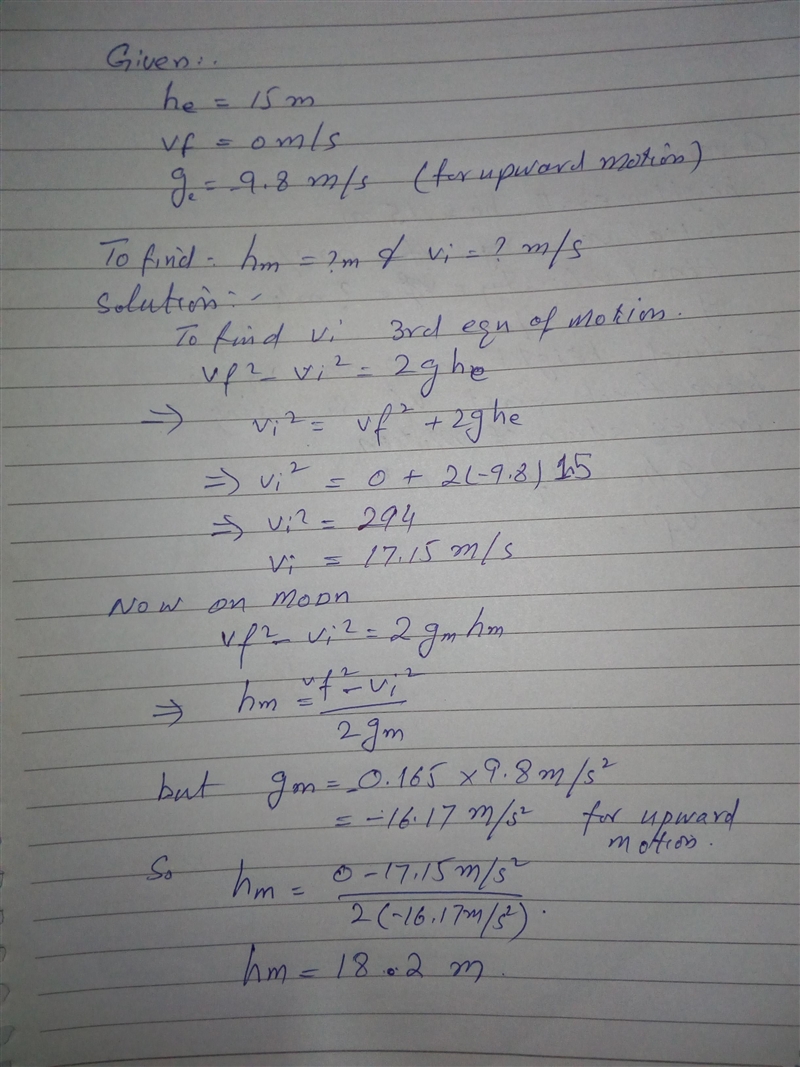 Given:.
he = 15 m
vf = 0 m/s
ge = -9.8 m/s (for upward motion)
To find - hm = ?m & vi = ? m/s
Solution:-
To find vi 3rd eqn of motion.
vf² - vi² = 2ghe
⇒ vi² = vf² + 2ghe
⇒ vi² = 0 + 2(-9.8) 15
⇒ vi² = 294
vi = 17.15 m/s
Now on moon
vf² - vi² = 2gmhm
⇒ hm = vf² - vi²
2gm
but gm = -0.165 × 9.8 m/s²
= -16.17 m/s² for upward
motion.
So hm = 0 - 17.15 m/s²
2(-16.17 m/s²).
hm = 18.2 m.